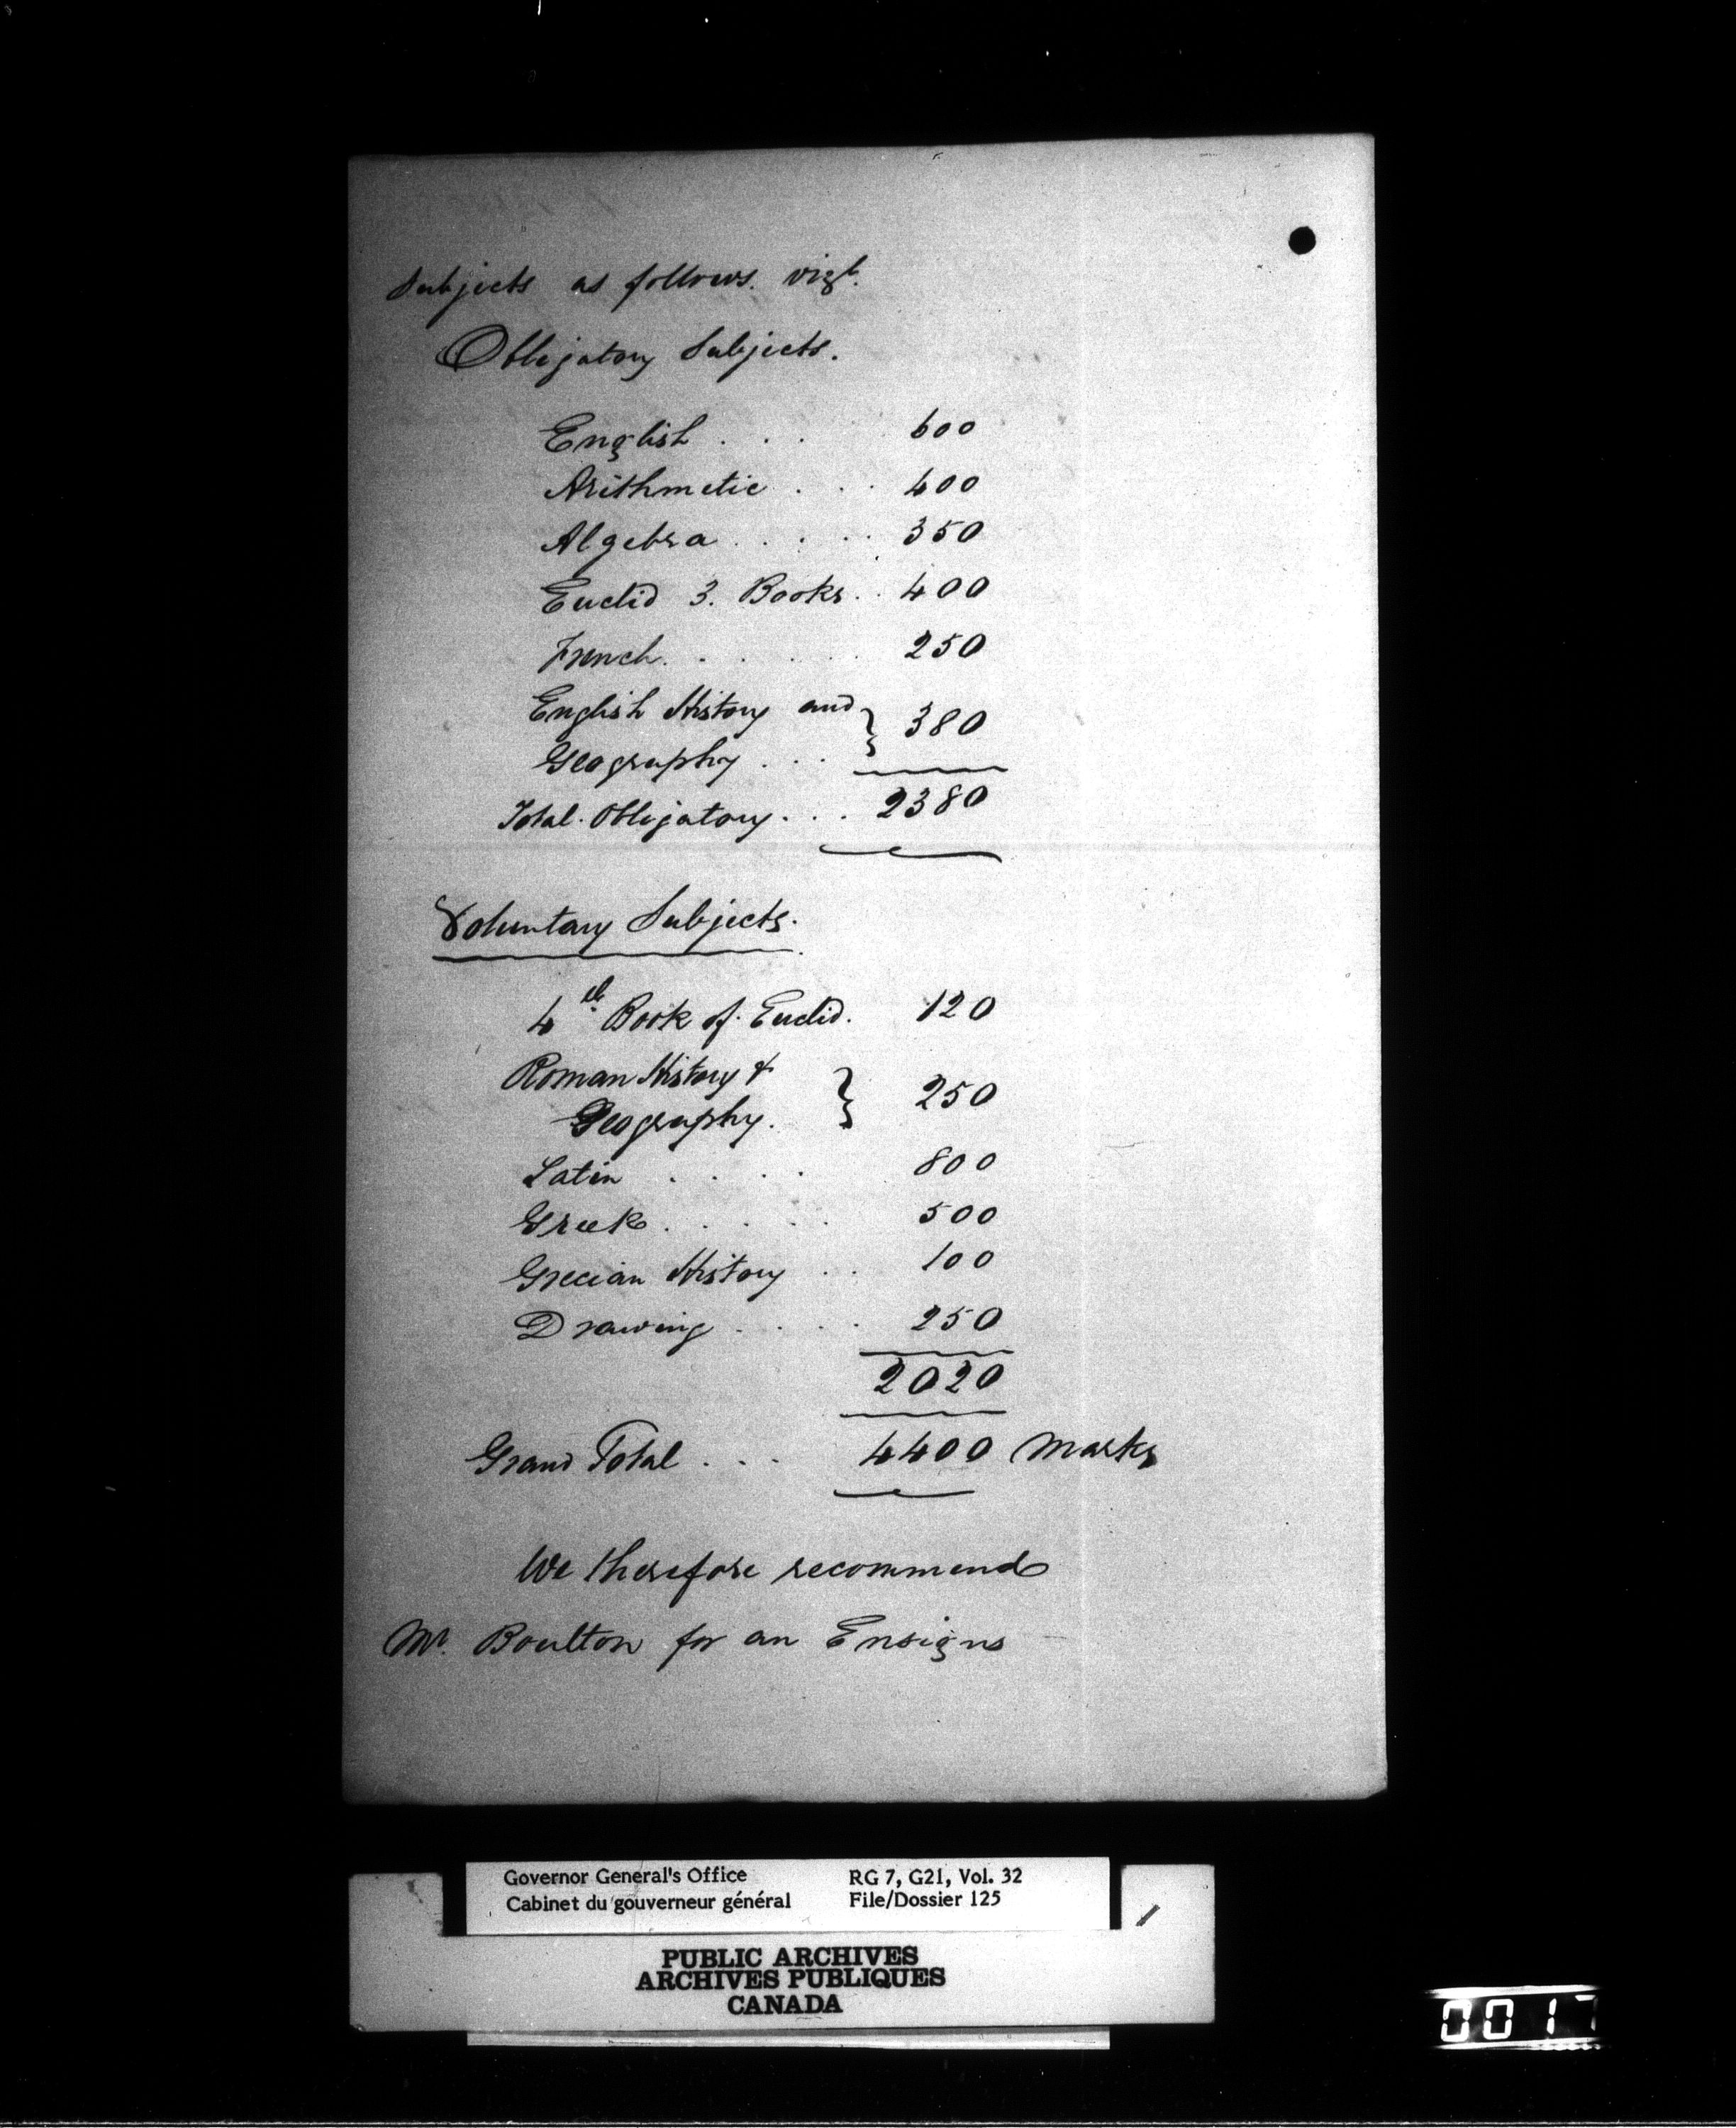 Subjects as follows. vizt.
Obligatory Subjects.
English . . . 600
Arithmetic . . . 400
Algebra . . . . 350
Euclid 3. Books . . 400
French . . . . . 250
English History and } 380
Geography . . .
Total Obligatory . . . 2380
Voluntary Subjects.
4th Book of Euclid. 120
Roman History & } 250
Geography.
Latin . . . . 800
Greek . . . . . 500
Grecian History . . 100
Drawing . . . . 250
2020
Grand Total . . . 4400 Marks
We therefore recommend
Mr. Boulton for an Ensigns
Governor General's Office RG 7, G21, Vol. 32
Cabinet du gouverneur général File/Dossier 125
PUBLIC ARCHIVES
ARCHIVES PUBLIQUES
CANADA
0017